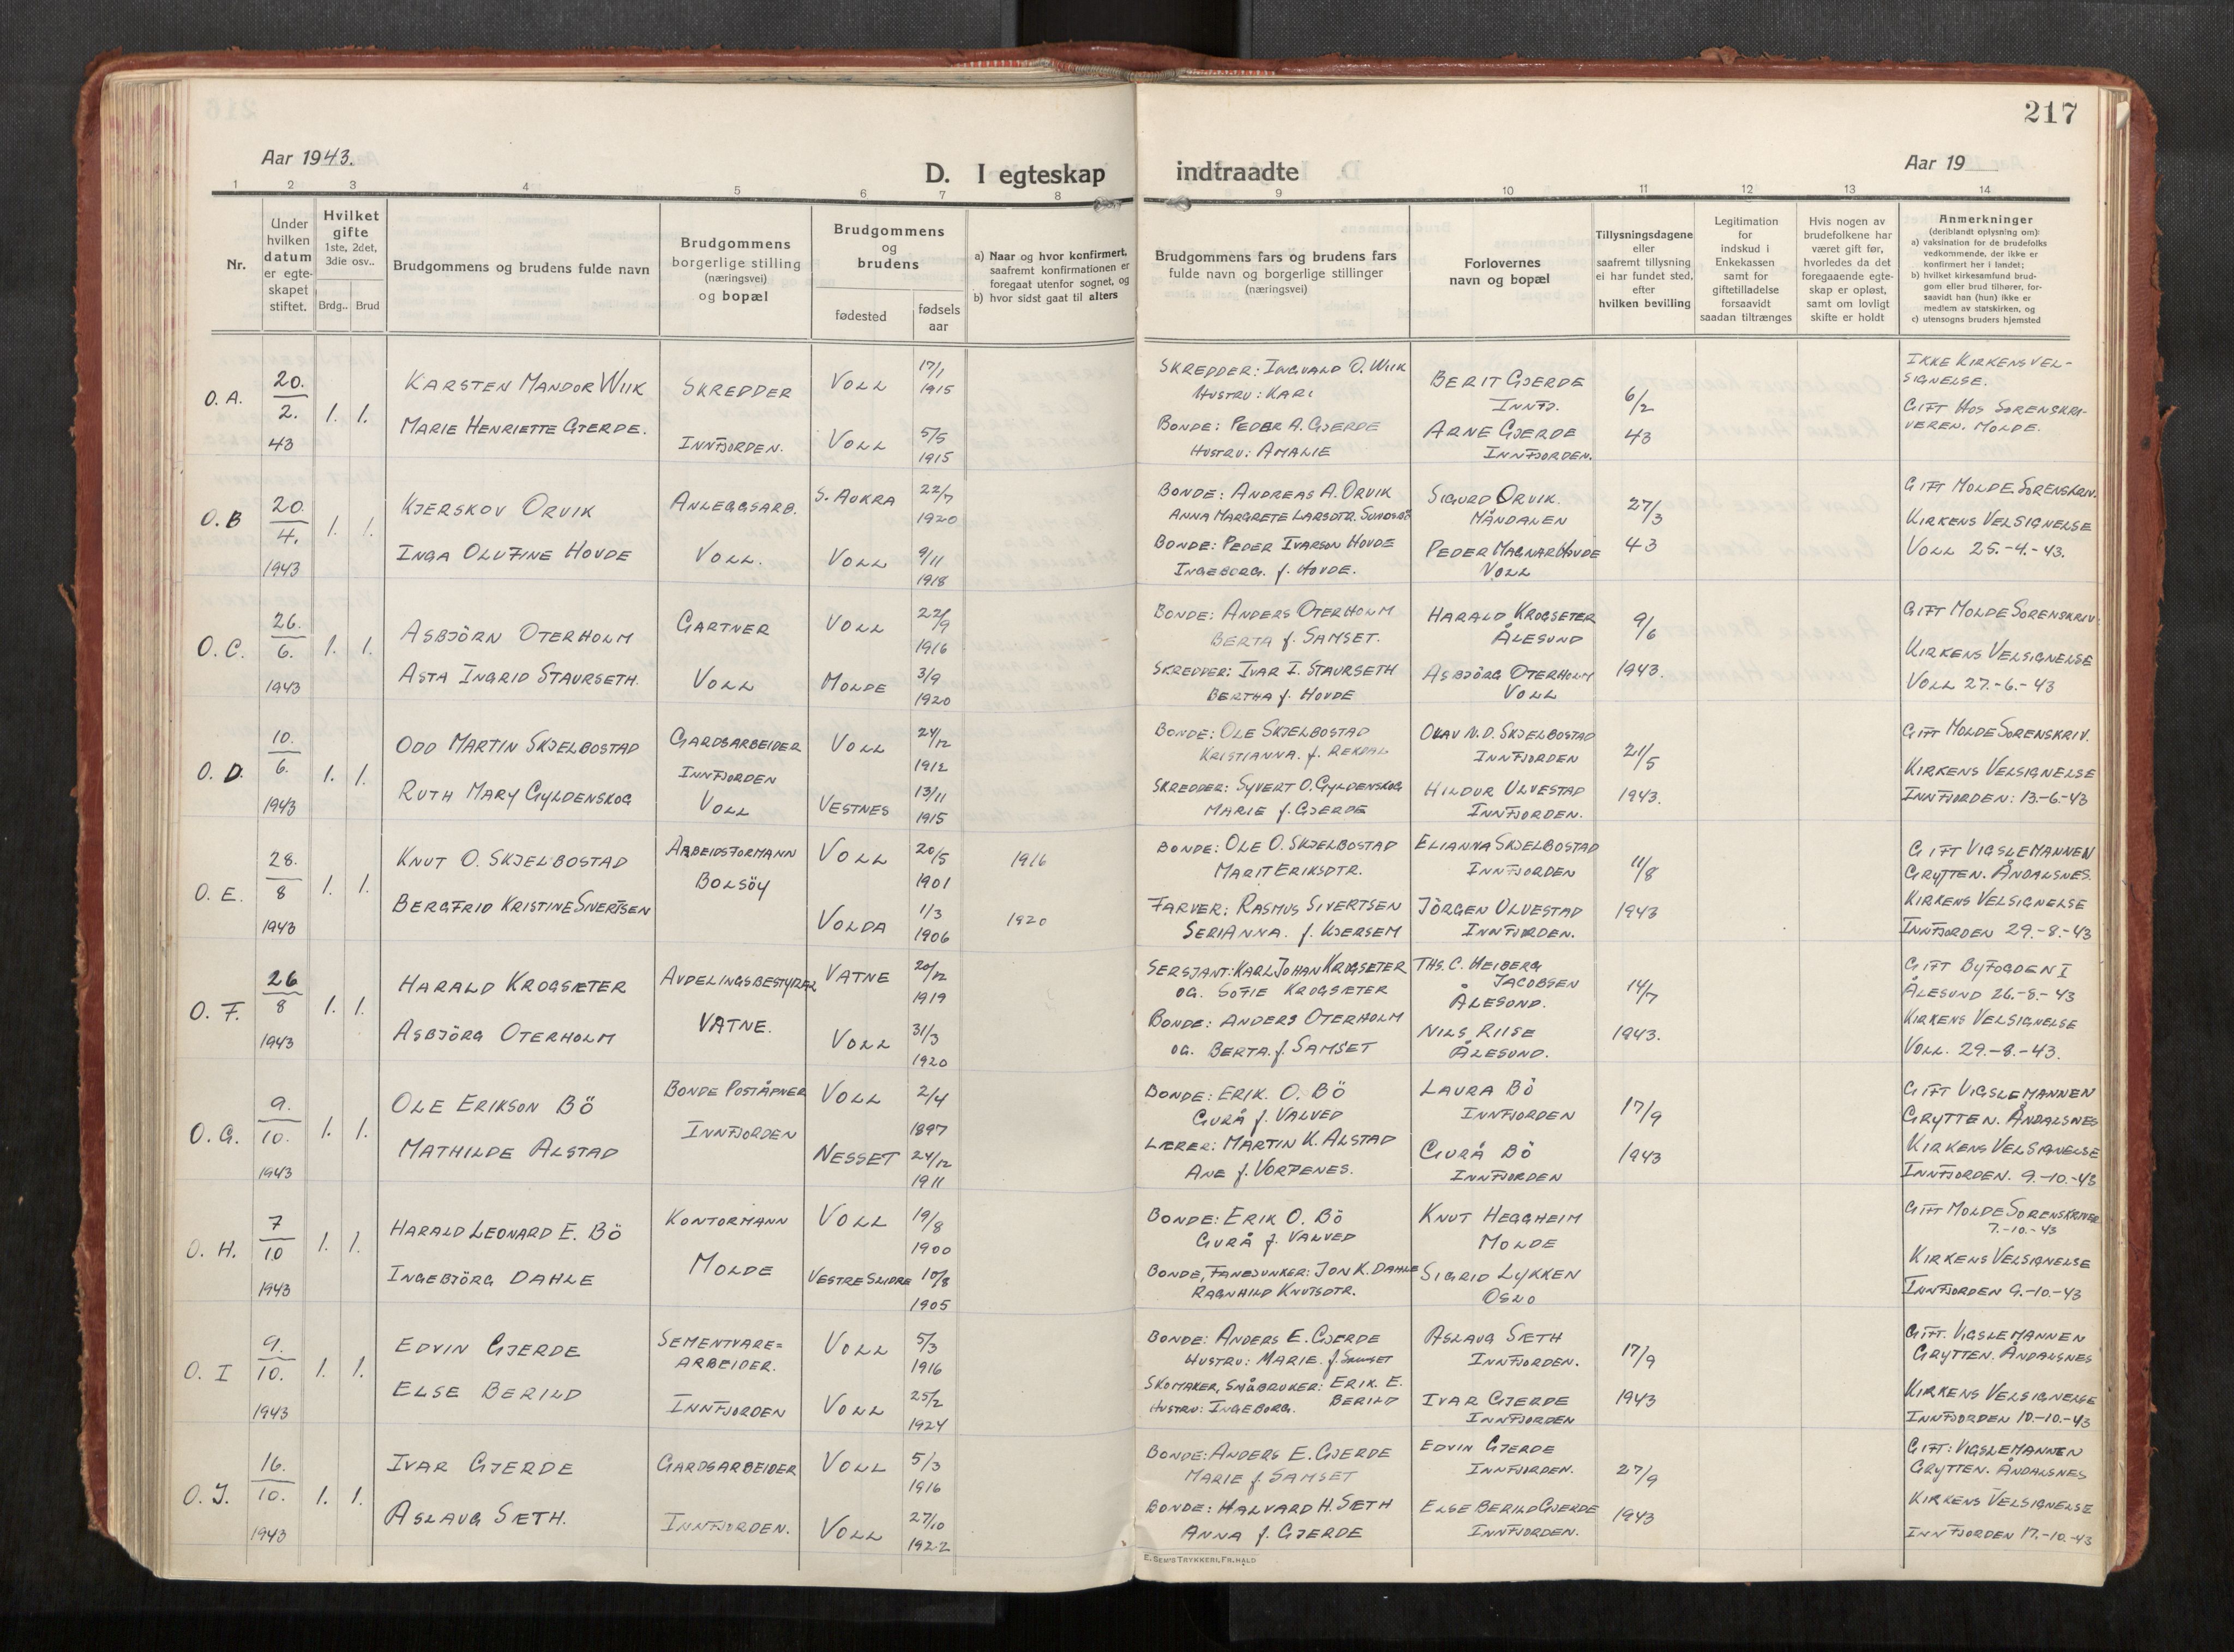 217
Aar 1943.
D. I egteskap indtraadte
Aar 19
1 2 3 4 5 6 7 8 9 10 11 12 13 14
Nr.
Under
hvilken
datum
er egte-
skapet
stiftet.
Hvilket
gifte
1ste, 2det,
3die osv..
Brdg.. Brud
Brudgommens og brudens fulde navn
Brudgommens
borgerlige stilling
(næringsvei)
og bopæl
Brudgommens
og
brudens
fødested
fødsels
aar
a) Naar og hvor konfirmert,
saafremt konfirmationen er
foregaat utenfor sognet, og
b) hvor sidst gaat til alters
Brudgommens fars og brudens fars
fulde navn og borgerlige stillinger
(næringsvei)
Forlovernes
navn og bopæl
Tillysningsdagene
eller
saafremt tillysning
ei har fundet sted,
efter
hvilken bevilling
Legitimation
for
indskud i
Enkekassen
samt for
giftetilladelse
forsaavidt
saadan tiltrænges
Hvis nogen av
brudefolkene har
været gift før,
hvorledes da det
foregaaende egte-
skap er opløst,
samt om lovligt
skifte er holdt
Anmerkninger
(deriblandt oplysning om):
a) vaksination for de brudefolks
vedkommende, der ikke er
konfirmert her i landet;
b) hvilket kirkesamfund brud-
gom eller brud tilhører, for-
saavidt han (hun) ikke er
medlem av statskirken, og
c) utensogns bruders hjemsted
O. A.
20.
2.
43
1. 1.
Karsten Mandor Wiik
Marie Henriette Gjerde.
Skredder
Innfjorden.
Voll
17/1
1915
Voll
5/5
1915
Skredder: Ingvald O. Wiik
Hustru: Kari
Bonde: Peder A. Gjerde
Hustru: Amalie
Berit Gjerde
Innfj.
Arne Gjerde
Innfjorden.
6/2
43
Ikke Kirkens Vel-
signelse.
Gift hos Sorenskri-
veren. Molde.
O. B
20.
4.
1943
1. 1.
Kjerskov Orvik
Inga Olufine Hovde
Anleggsarb.
Voll.
S. Aukra
22/7
1920
Voll
9/11
1918
Bonde: Andreas A. Orvik
Anna Margrete Larsdtr. Sundsbö
Bonde: Peder Ivarson Hovde
Ingeborg. f. Hovde.
Sigurd Orvik.
Måndalen
Peder Magnar Hovde
Voll
27/3
43
Gift Molde Sorenskriv.
Kirkens Velsignelse
Voll 25.-4.-43.
O. C.
26.
6.
1943
1. 1.
Asbjörn Oterholm
Asta Ingrid Staurseth.
Gartner
Voll
Voll
22/9
1916
Molde
3/9
1920
Bonde: Anders Oterholm
Berta f. Samset.
Skredder: Ivar I. Staurseth
Bertha f. Hovde
Harald Krogseter
Ålesund
Asbjörg Oterholm
Voll
9/6
1943.
Gift Molde Sorenskriv.
Kirkens Velsignelse
Voll 27.-6.-43
O. D.
10.
6.
1943
1. 1.
Odd Martin Skjelbostad
Ruth Mary Gyldenskog
Gardsarbeider
Innfjorden
Voll
Voll
24/12
1912
Vestnes
13/11
1915
Bonde: Ole Skjelbostad
Kristianna. f. Rekdal
Skredder: Syvert O. Gyldenskog
Marie f. Gjerde
Olav N.D. Skjelbostad
Innfjorden
Hildur Ulvestad
Innfjorden.
21/5
1943.
Gift Molde Sorenskriv.
Kirkens Velsignelse
Innfjorden: 13.-6.-43
O. E.
28.
8
1943
1. 1.
Knut O. Skjelbostad
Bergfrid Kristine Sivertsen
Arbeidsformann
Bolsöy
Voll
20/5
1901
Volda
1/3
1906
1916
1920
Bonde: Ole O. Skjelbostad
Marit Eriksdtr.
Farver: Rasmus Sivertsen
Serianna. f. Kjersem
Elianna Skjelbostad
Innfjorden
Jörgen Ulvestad
Innfjorden.
11/8
1943
Gift Vigslemannen
Grytten. Åndalsnes.
Kirkens Velsignelse
Innfjorden 29.-8.-43
O. F.
26
8
1943
1. 1.
Harald Krogsæter
Asbjörg Oterholm
Avdelingsbestyrer
Vatne.
Vatne
20/12
1919
Voll
31/3
1920
Sersjant: Karl Johan Krogseter
og. Sofie Krogsæter
Bonde: Anders Oterholm
og. Berta. f. Samset
Ths. C. Heiberg
Jacobsen
Ålesund.
Nils Riise
Ålesund.
14/7
1943.
Gift Byfogden I
Ålesund 26.-8.-43
Kirkens Velsignelse
Voll. 29.-8.-43.
O. G.
9.
10.
1943
1. 1.
Ole Erikson Bö
Mathilde Alstad
Bonde Poståpner
Innfjorden
Voll
2/4
1897
Nesset
24/12
1911
Bonde: Erik. O. Bö
Gurå f. Valved
Lærer: Martin K. Alstad
Ane f. Vorpenes.
Laura Bö
Innfjorden
Gurå Bö
Innfjorden
17/9
1943
Gift Vigslemannen
Grytten. Åndalsnes
Kirkens Velsignelse
Innfjorden. 9.-10.-43
O. H.
7
10
1943
1. 1.
Harald Leonard E. Bö
Ingebjörg Dahle
Kontormann
Molde
Voll
19/8
1900
Vestre Slidre
10/8
1905
Bonde: Erik O. Bö
Gurå f. Valved
Bonde, Fanejunker: Jon K. Dahle
Ragnhild Knutsdtr.
Knut Heggheim
Molde
Sigrid Lykken
Oslo
Gift Molde Sorenskriver
7.-10.-43
Kirkens Velsignelse
Innfjorden 9.-10.-43
O. I
9.
10.
1943
1. 1.
Edvin Gjerde
Else Berild
Sementvare=
arbeider.
Innfjorden
Voll
5/3
1916
Voll
25/2
1924
Bonde: Anders E. Gjerde
Hustru: Marie. f. Samset
Skomaker, Småbruker: Erik. E.
Berild
Hustru: Ingeborg.
Aslaug Sæth
Innfjorden.
Ivar Gjerde
Innfjorden
17/9
1943
Gift. Vigslemannen
Grytten. Åndalsnes
Kirkens Velsignelse
Innfjorden 10.-10.-43
O. J.
16.
10.
1943
1. 1.
Ivar Gjerde
Aslaug Sæth.
Gardsarbeider
Innfjorden.
Voll
5/3
1916
Voll
27/10
1922
Bonde: Anders E. Gjerde
Marie f. Samset
Bonde: Halvard H. Sæth
Anna f. Gjerde
Edvin Gjerde
Innfjorden.
Else Berild Gjerde
Innfjorden.
27/9
1943
Gift: Vigslemannen
Grytten. Åndalsnes
Kirkens Velsignelse
Innfjorden 17.-10.-43
E. Sem's Trykkeri, Fr.hald